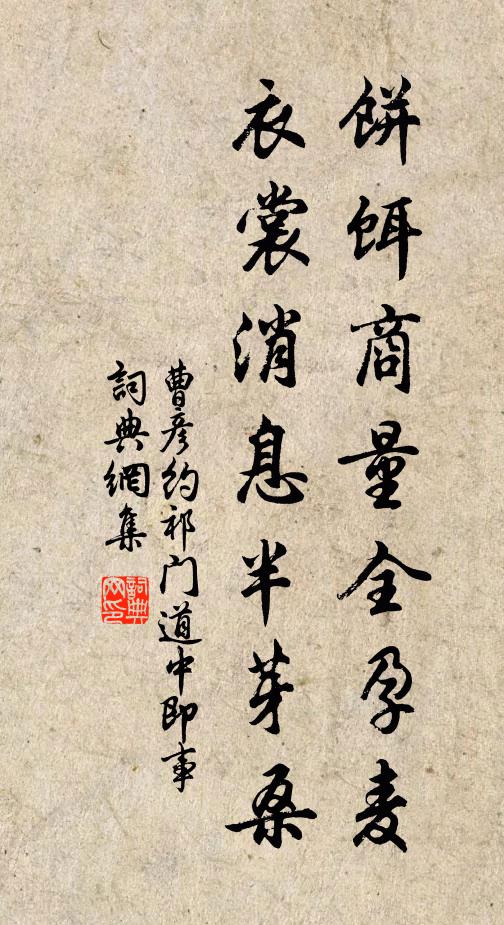 餅餌商量全孕麦
衣裳消息半芽桑
曹彦約祁门道中即事
詞典網集
詞典网印